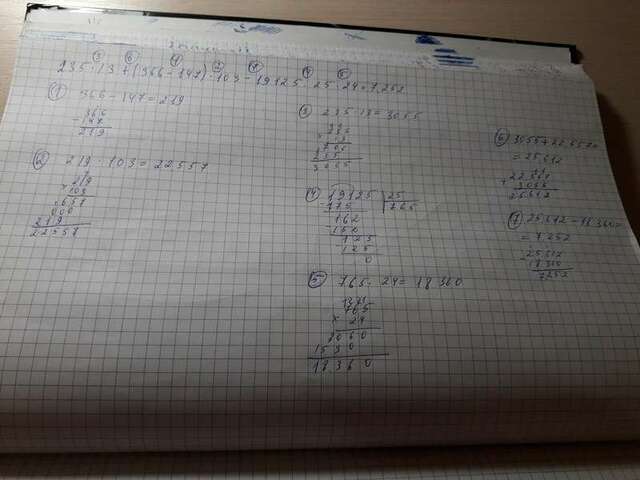 3 6 1 2 7 4 5
235·13+(366-147)·103-19125:25·24=7252
1 366-147=219
366
-147
219
2 219·103=22557
219
×103
657
000
219
22557
3 235·13=3055
235
×13
705
235
3055
4 19125 25
175 765
162
-150
125
-125
0
5 765·24=18360
765
×24
3060
1530
18360
6 3055+22557=
=25612
22557
+3055
25612
7 25612-18360=
=7252
-25612
18360
7252